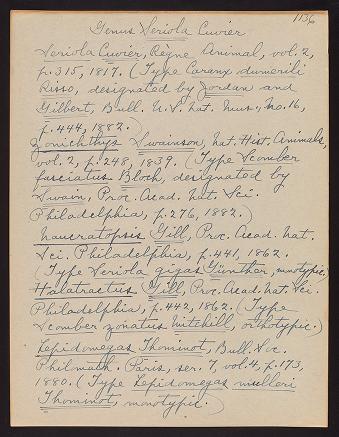 1136
Genus Seriola Cuvier
Seriola Cuvier, Règne Animal, vol. 2,
p. 315, 1817. (Type Caranx dumerili
Risso, designated by Jordan and
Gilbert, Bull. U.S. Nat. Mus., No. 16,
p. 444, 1882.)
Zonichthys Swainson, Nat. Hist. Animals,
vol. 2, p. 248, 1839. (Type Scomber
fasciatus Bloch, designated by
Swain, Proc. Acad. Nat. Sci.
Philadelphia, p. 276, 1882.)
Naucratopsis Gill, Proc. Acad. Nat.
Sci. Philadelphia, p. 441, 1862.
(Type Seriola gigas Günther, monotypic.)
Halatractus Gill, Proc. Acad. Nat. Sci.
Philadelphia, p. 442, 1862. (Type
Scomber zonatus Mitchill, orthotypic.)
Lepidomegas Thominot, Bull. Soc.
Philomath. Paris, ser. 7, vol. 4, p. 173,
1880. (Type Lepidomegas mulleri
Thominot, monotypic.)